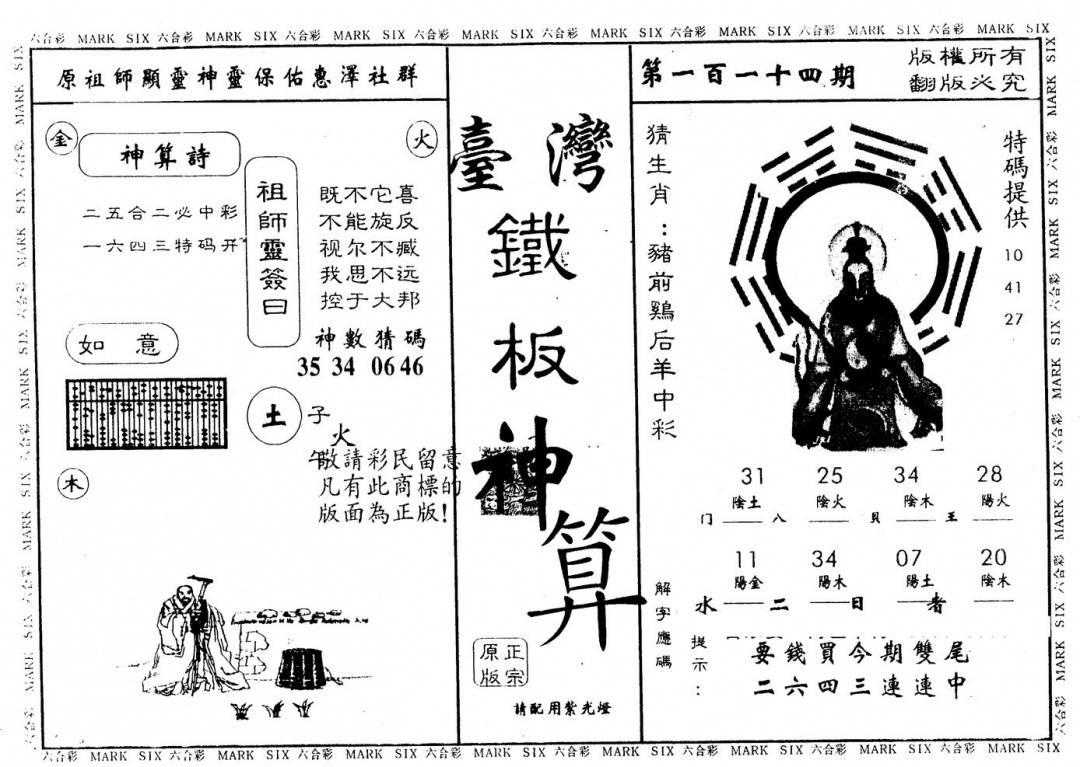 六合彩 MARK SIX 六合彩 MARK SIX 六合彩 MARK SIX 六合彩 MARK SIX 六合彩 MARK SIX 六合彩 MARK SIX 六合彩 MARK SIX 六合彩 MARK SIX
原祖師顯靈神靈保佑惠澤社群
金
火
神算詩
二五合二必中彩
一六四三特码开
祖師靈簽曰
既不它喜
不能旋反
视尔不臧
我思不远
控于大邦
神數猜碼
35 34 06 46
如意
土
子
火
午
木
敬請彩民留意
凡有此商標的
版面為正版!
臺灣
鐵板神算
正宗
原版
請配用紫光燈
第一百一十四期
版權所有
翻版必究
猜生肖:豬前鷄后羊中彩
特碼提供
10
41
27
31 25 34 28
陰土 陰火 陰木 陽火
门 八 貝 王
11 34 07 20
陽金 陽木 陽土 陰木
水 二 日 者
解字應碼
提示:
要錢買今期雙尾
二六四三連連中
六合彩 MARK SIX 六合彩 MARK SIX 六合彩 MARK SIX 六合彩 MARK SIX 六合彩 MARK SIX 六合彩 MARK SIX 六合彩 MARK SIX 六合彩 MARK SIX